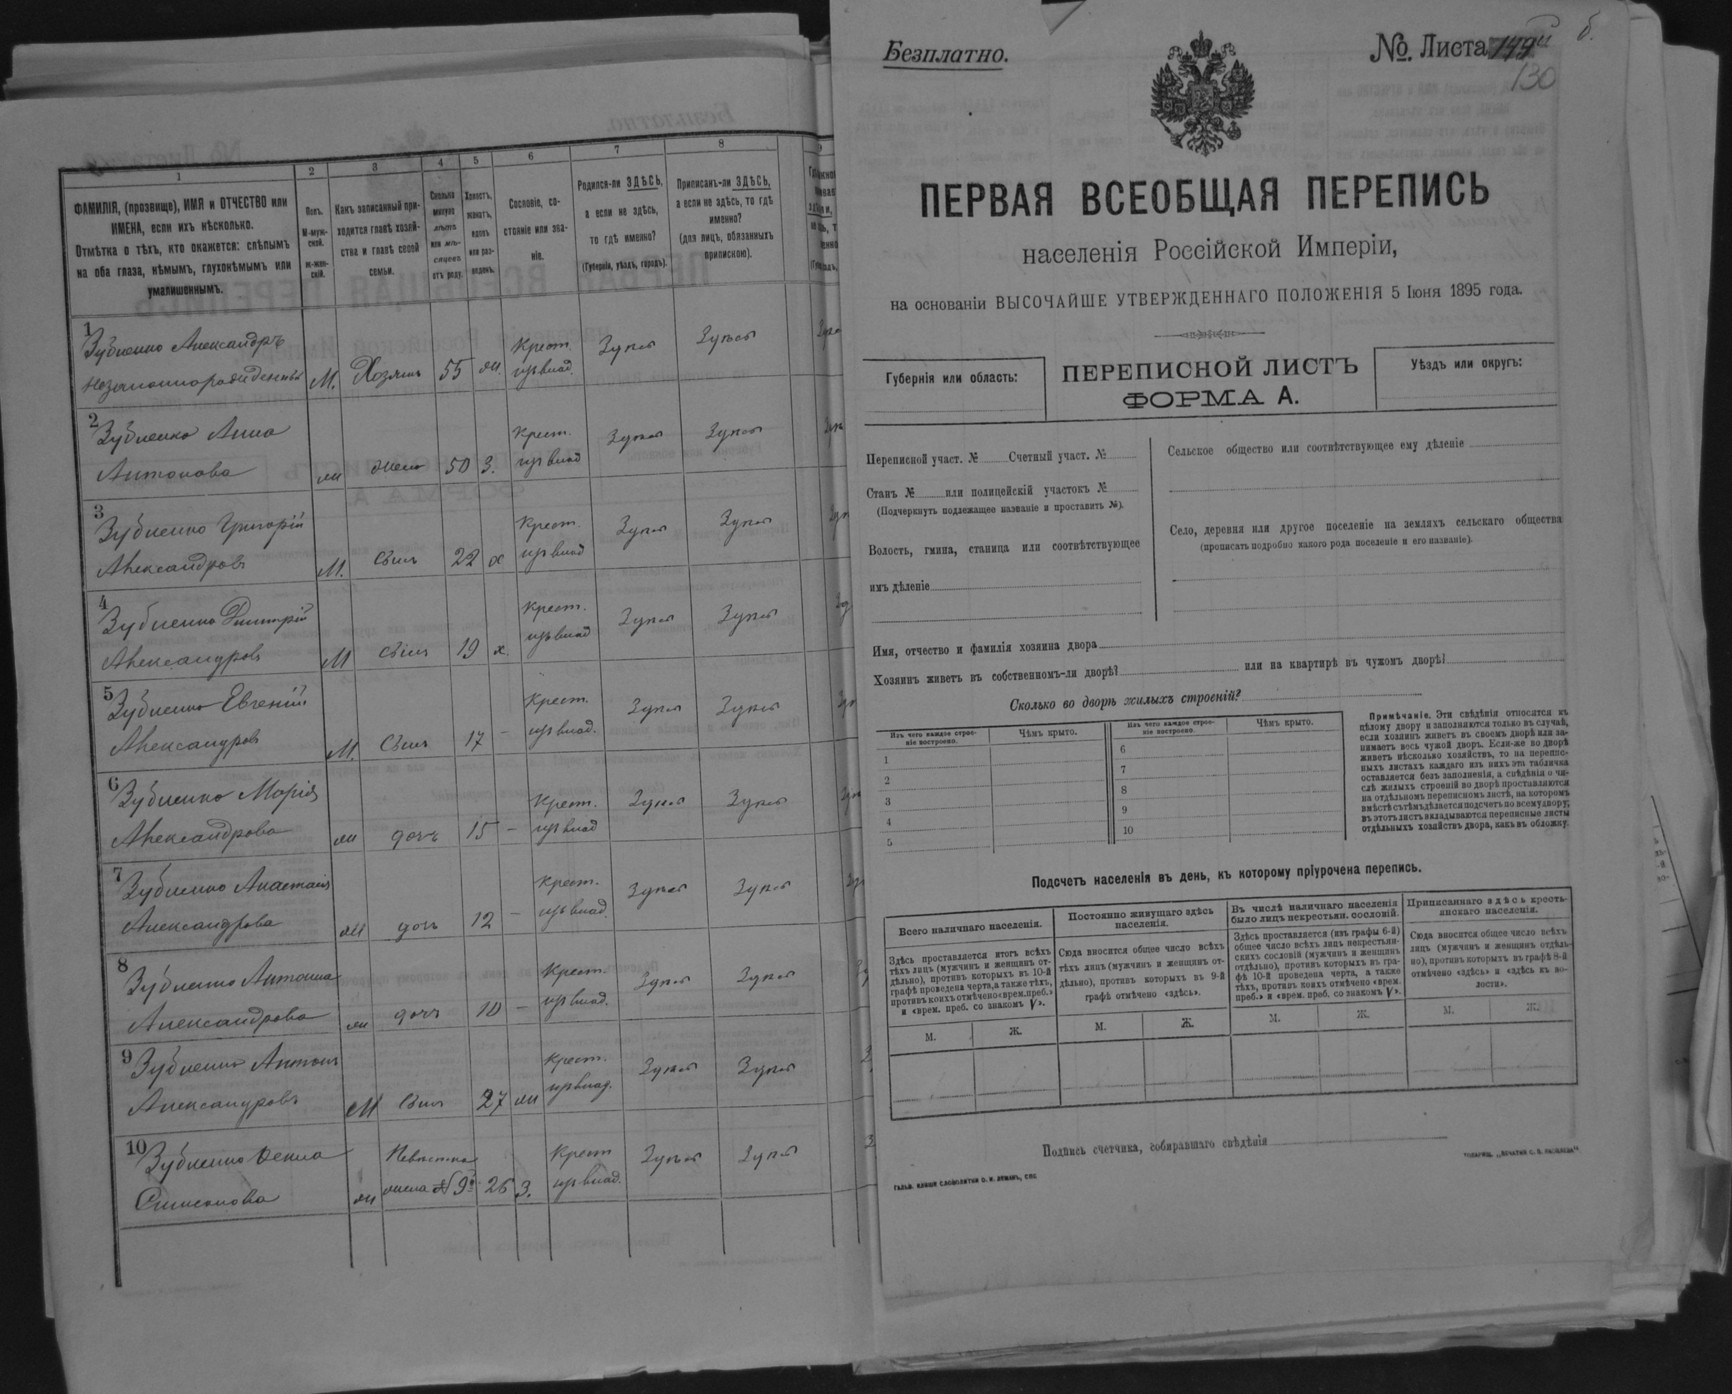 1
2
3
4
5
6
7
8
ФАМИЛІЯ, (прозвище), ИМЯ и ОТЧЕСТВО или
ИМЕНА, если ихъ нѣсколько.
Отмѣтка о тѣхъ, кто окажется: слѣпымъ
на оба глаза, нѣмымъ, глухонѣмымъ или
умалишеннымъ.
Полъ.
М-муж-
ской.
ж-жен-
скій.
Какъ записанный при-
ходится главѣ хозяй-
ства и главѣ своей
семьи.
Сколько
минуло
лѣтъ
или мѣ-
сяцевъ
отъ роду.
Холостъ,
женатъ,
вдовъ
или раз-
веденъ.
Сословіе, со-
стояніе или зва-
ніе.
Родился-ли ЗДѢСЬ,
а если не здѣсь,
то гдѣ именно?
(Губернія, уѣздъ, городъ).
Приписанъ-ли ЗДѢСЬ,
а если не здѣсь, то гдѣ
именно?
(для лицъ, обязанныхъ
припискою).
1
Зубченко Александръ
незаконнорожденный
М.
Хозяинъ
55
Крест.
Здѣсь
Здѣсь
2
Зубченко Анна
Антонова
жена
50
З.
Крест.
Здѣсь
Здѣсь
3
Зубченко Григорій
Александровъ
М.
Сынъ
22
х
Крест.
Здѣсь
Здѣсь
4
Зубченко Дмитрій
Александровъ
М
Сынъ
19
х.
Крест.
Здѣсь
Здѣсь
5
Зубченко Евгеній
Александровъ
М.
Сынъ
17
-
Крест.
Здѣсь
Здѣсь
6
Зубченко Марія
Александрова
дочь
15
-
Крест.
Здѣсь
Здѣсь
7
Зубченко Анастасія
Александрова
дочь
12
-
Крест.
Здѣсь
Здѣсь
8
Зубченко Антонина
Александрова
дочь
10
-
Крест.
Здѣсь
Здѣсь
9
Зубченко Антонъ
Александровъ
М
Сынъ
27
Крест.
Здѣсь
Здѣсь
10
Зубченко
Симонова
Невѣстка
жена № 9й
26
З.
Крест
Здѣсь
Здѣсь
Безплатно.
№. Листа
130
ПЕРВАЯ ВСЕОБЩАЯ ПЕРЕПИСЬ
населенія Россійской Имперіи,
на основаніи ВЫСОЧАЙШЕ УТВЕРЖДЕННАГО ПОЛОЖЕНІЯ 5 Іюня 1895 года.
Губернія или область:
ПЕРЕПИСНОЙ ЛИСТЪ
ФОРМА А.
Уѣздъ или округъ:
Переписной участ. № Счетный участ. №
Станъ № или полицейскій участокъ №
(Подчеркнуть подлежащее названіе и проставить №).
Волость, гмина, станица или соотвѣтствующее
имъ дѣленіе
Сельское общество или соотвѣтствующее ему дѣленіе
Село, деревня или другое поселеніе на земляхъ сельскаго общества
(прописать подробно какого рода поселеніе и его названіе).
Имя, отчество и фамилія хозяина двора
Хозяинъ живетъ въ собственномъ-ли дворѣ? или на квартирѣ въ чужомъ дворѣ?
Сколько во дворѣ жилыхъ строеній?
Изъ чего каждое строе-
ніе построено.
Чѣмъ крыто.
Изъ чего каждое строе-
ніе построено.
Чѣмъ крыто.
1
2
3
4
5
6
7
8
9
10
Примѣчаніе. Эти свѣдѣнія относятся къ
цѣлому двору и заполняются только въ случаѣ,
если хозяинъ живетъ въ своемъ дворѣ или за-
нимаетъ весь чужой дворъ. Если-же во дворѣ
живетъ нѣсколько хозяйствъ, то на перепис-
ныхъ листахъ каждаго изъ нихъ эта табличка
оставляется безъ заполненія, а свѣдѣнія о чи-
слѣ жилыхъ строеній во дворѣ проставляются
на отдѣльномъ переписномъ листѣ, на которомъ
вмѣстѣ съ тѣмъ дѣлается подсчетъ по всему двору;
въ этотъ листъ вкладываются переписные листы
отдѣльныхъ хозяйствъ двора, какъ въ обложку.
Подсчетъ населенія въ день, къ которому пріурочена перепись.
Всего наличнаго населенія.
Здѣсь проставляется итогъ всѣхъ
тѣхъ лицъ (мужчинъ и женщинъ от-
дѣльно), противъ которыхъ въ 10-й
графѣ проведена черта, а также тѣхъ,
противъ коихъ отмѣчено «врем. преб.»
и «врем. преб. со знакомъ V».
Постоянно живущаго здѣсь
населенія.
Сюда вносится общее число всѣхъ
тѣхъ лицъ (мужчинъ и женщинъ от-
дѣльно), противъ которыхъ въ 9-й
графѣ отмѣчено «здѣсь».
Въ числѣ наличнаго населенія
было лицъ некрестьян. сословій.
Здѣсь проставляется (изъ графы 6-й)
общее число всѣхъ лицъ некрестьян-
скихъ сословій (мужчинъ и женщинъ
отдѣльно), противъ которыхъ въ гра-
фѣ 10-й проведена черта, а также
тѣхъ, противъ коихъ отмѣчено «врем.
преб.» и «врем. преб. со знакомъ V».
Приписаннаго здѣсь кресть-
янскаго населенія.
Сюда вносится общее число всѣхъ
лицъ (мужчинъ и женщинъ отдѣль-
но), противъ которыхъ въ графѣ 8-й
отмѣчено «здѣсь» и «здѣсь въ во-
лости».
М.
Ж.
М.
Ж.
М.
Ж.
М.
Ж.
Подпись счетчика, собиравшаго свѣдѣнія